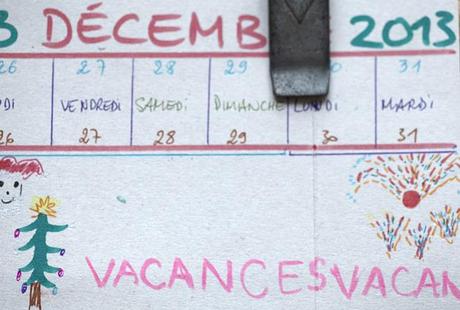 DÉCEMB 2013
26 27 28 29 30 31
DI VENDREDI SAMEDI DIMANCHE LUNDI MARDI
26 27 28 29 30 31
VACANCES VACAN